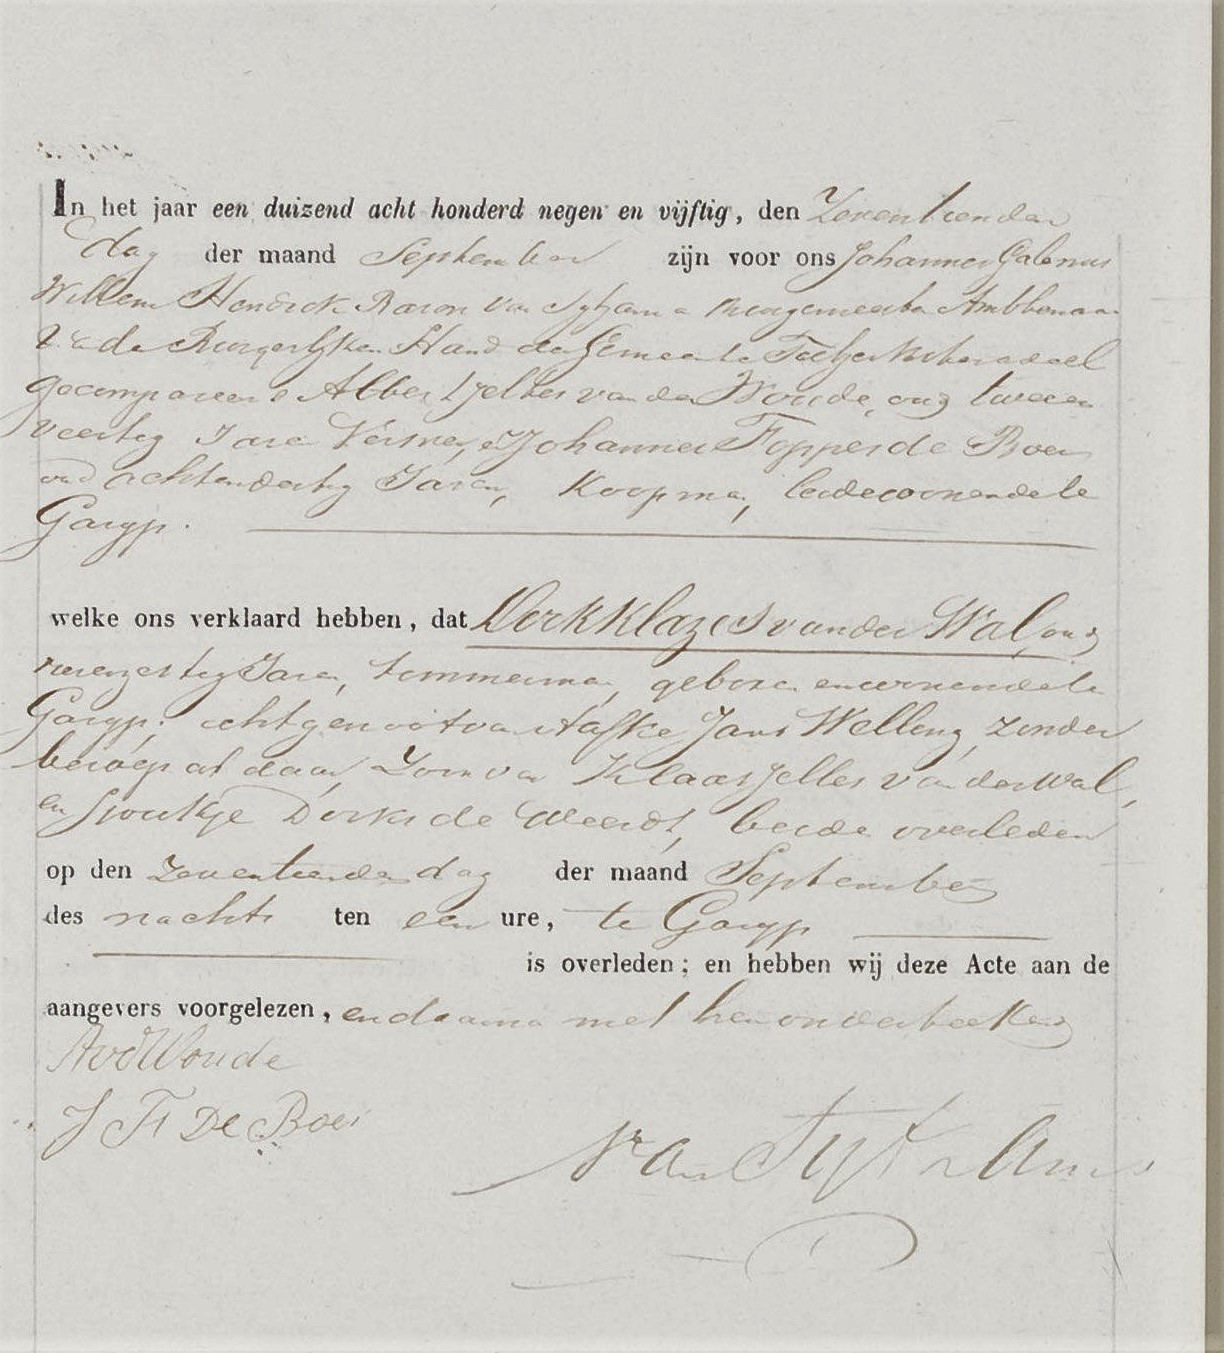 In het jaar een duizend acht honderd negen en vijftig, den Zeventienden
dag der maand September zijn voor ons Johannes Galenus
Willem Hendrik Baron van Sytzama Burgemeester Ambtenaar
v. de Burgerlijken Stand der Gemeente Tietjerksteradeel
gecompareerd Abbe Jeltes van der Woude, oud twee en
veertig Jaren Verwer, en Johannes Foppes de Boer
oud achtendertig Jaren, Koopman, beide woonende te
Garyp.
welke ons verklaard hebben, dat Derk Klazes van der Wal, oud
Jaren, timmerman, geboren en woonende te
Garyp, echtgenoot van Aafke Jans Welling, zonder
beroep al daar, Zoon van Klaas Jelles van der Wal,
en Sjoukje Derks de Weerdt, beide overleden
op den zeventienden dag der maand September
des nachts ten een ure, te Garyp
is overleden; en hebben wij deze Acte aan de
aangevers voorgelezen, en daarna met hen onderteekend
A v d Woude
J Fs De Boer
van Sytzama